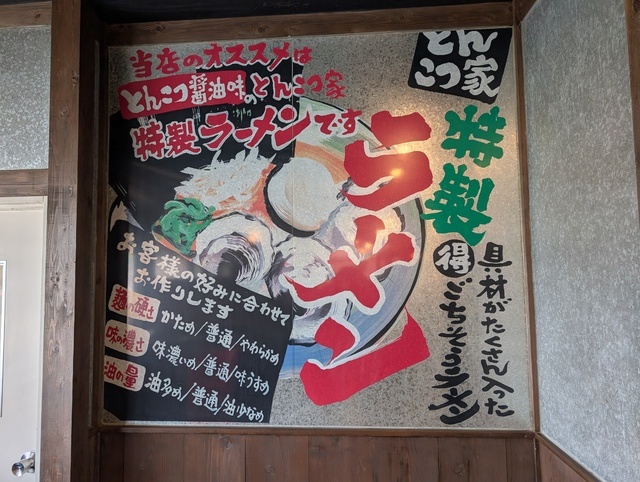 当店のオススメは
とんこつ醤油味のとんこつ家
特製ラーメンです
とんこつ家
特製
ラーメン
得
具材がたくさん入った
ごちそうラーメン
お客様の好みに合わせて
お作りします
麺の硬さ かため/普通/やわらかめ
味の濃さ 味濃いめ/普通/味うすめ
油の量 油多め/普通/油少なめ